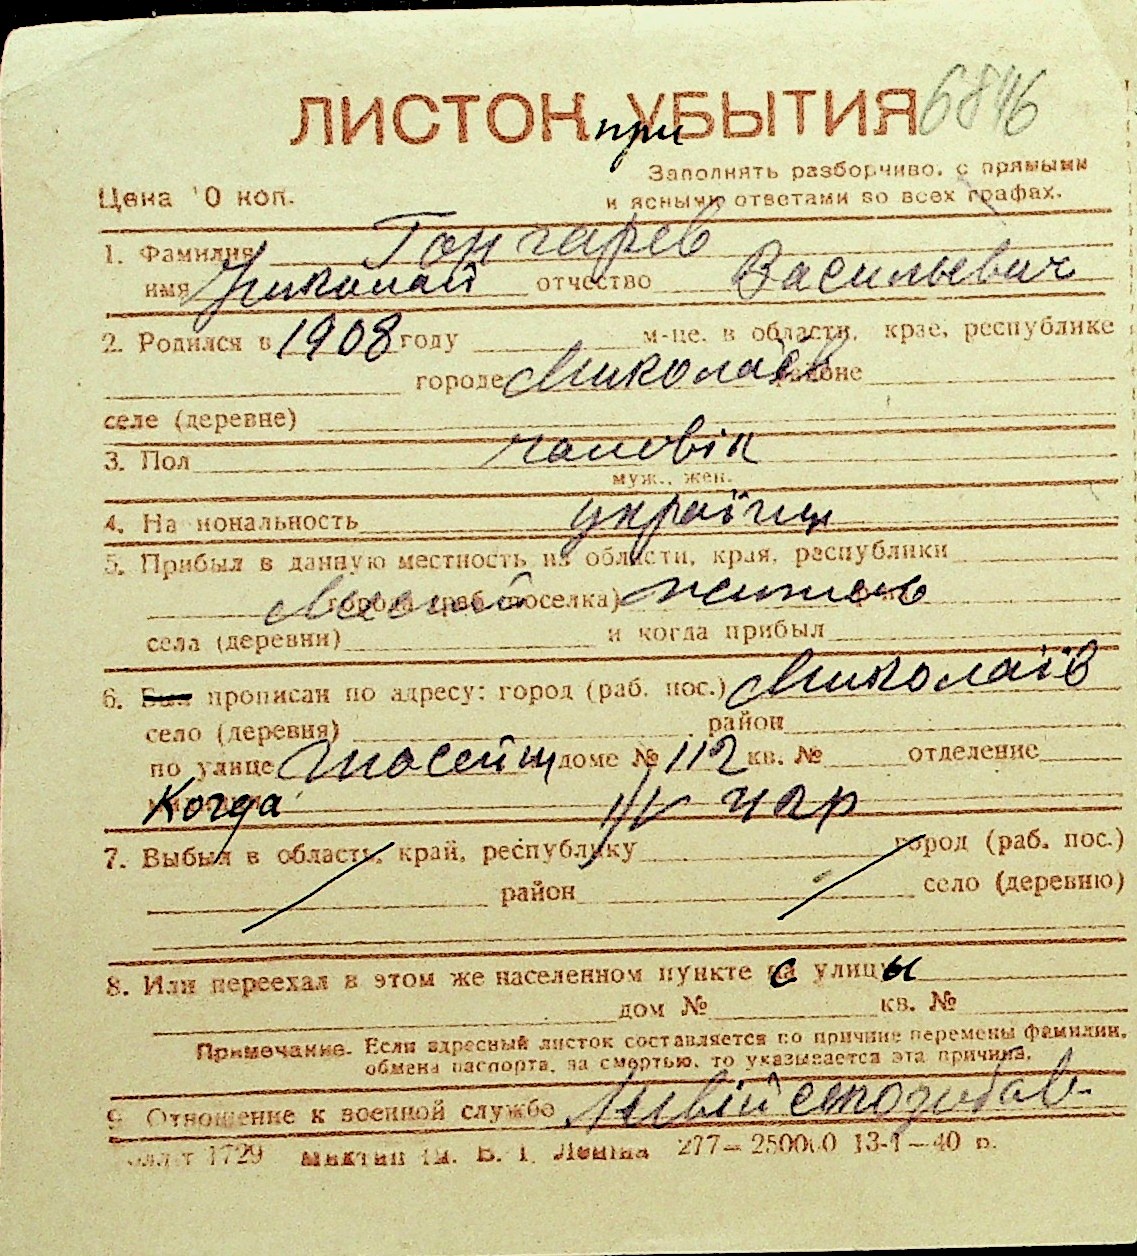 ЛИСТОК при УБЫТИЯ 6846
Заполнять разборчиво, с прямыми
Цена 10 коп. и ясными ответами во всех графах.
1. Фамилия Гончарев
имя Николай отчество Васильевич
2. Родился в 1908 году м-це, в области, крае, республике
городе Миколаєв районе
селе (деревне)
3. Пол чоловік
муж., жен.
4. Национальность українц
5. Прибыл в данную местность из области, края, республики
города (раб. поселка) житель
села (деревни) и когда прибыл
6. Был прописан по адресу: город (раб. пос.) Миколаїв
село (деревня) район
по улице доме № 112 кв. № отделение
Когда
7. Выбыл в область, край, республику город (раб. пос.)
район село (деревню)
8. Или переехал в этом же населенном пункте с улицы
дом № кв. №
Примечание. Если адресный листок составляется по причине перемены фамилии,
обмена паспорта, за смертью, то указывается эта причина.
9. Отношение к военной службе
1729 ім. В. І. Леніна 277—250000 13-1—40 р.